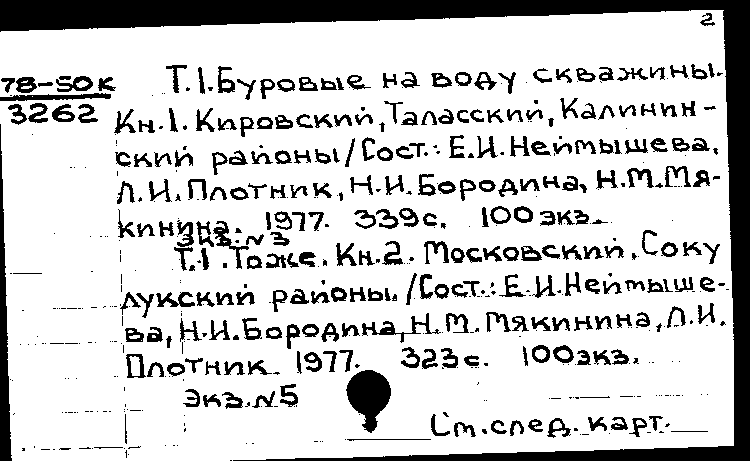 2
78-50К
3262
Т.1.Буровые на воду скважины.
Кн.1.Кировский, Таласский, Калинин-
ский районы/Сост.: Е.И.Неймышева,
Л.И.Плотник, Н.И.Бородина, Н.М.Мя-
кинина. 1977. 339с. 100экз.
Экз.№3
Т.1.Тоже. Кн.2. Московский, Соку
лукский районы./Сост.: Е.И.Неймыше-
ва, Н.И.Бородина, Н.М.Мякинина, Л.И.
Плотник 1977. 323с. 100экз.
Экз.№5
См.след.карт.